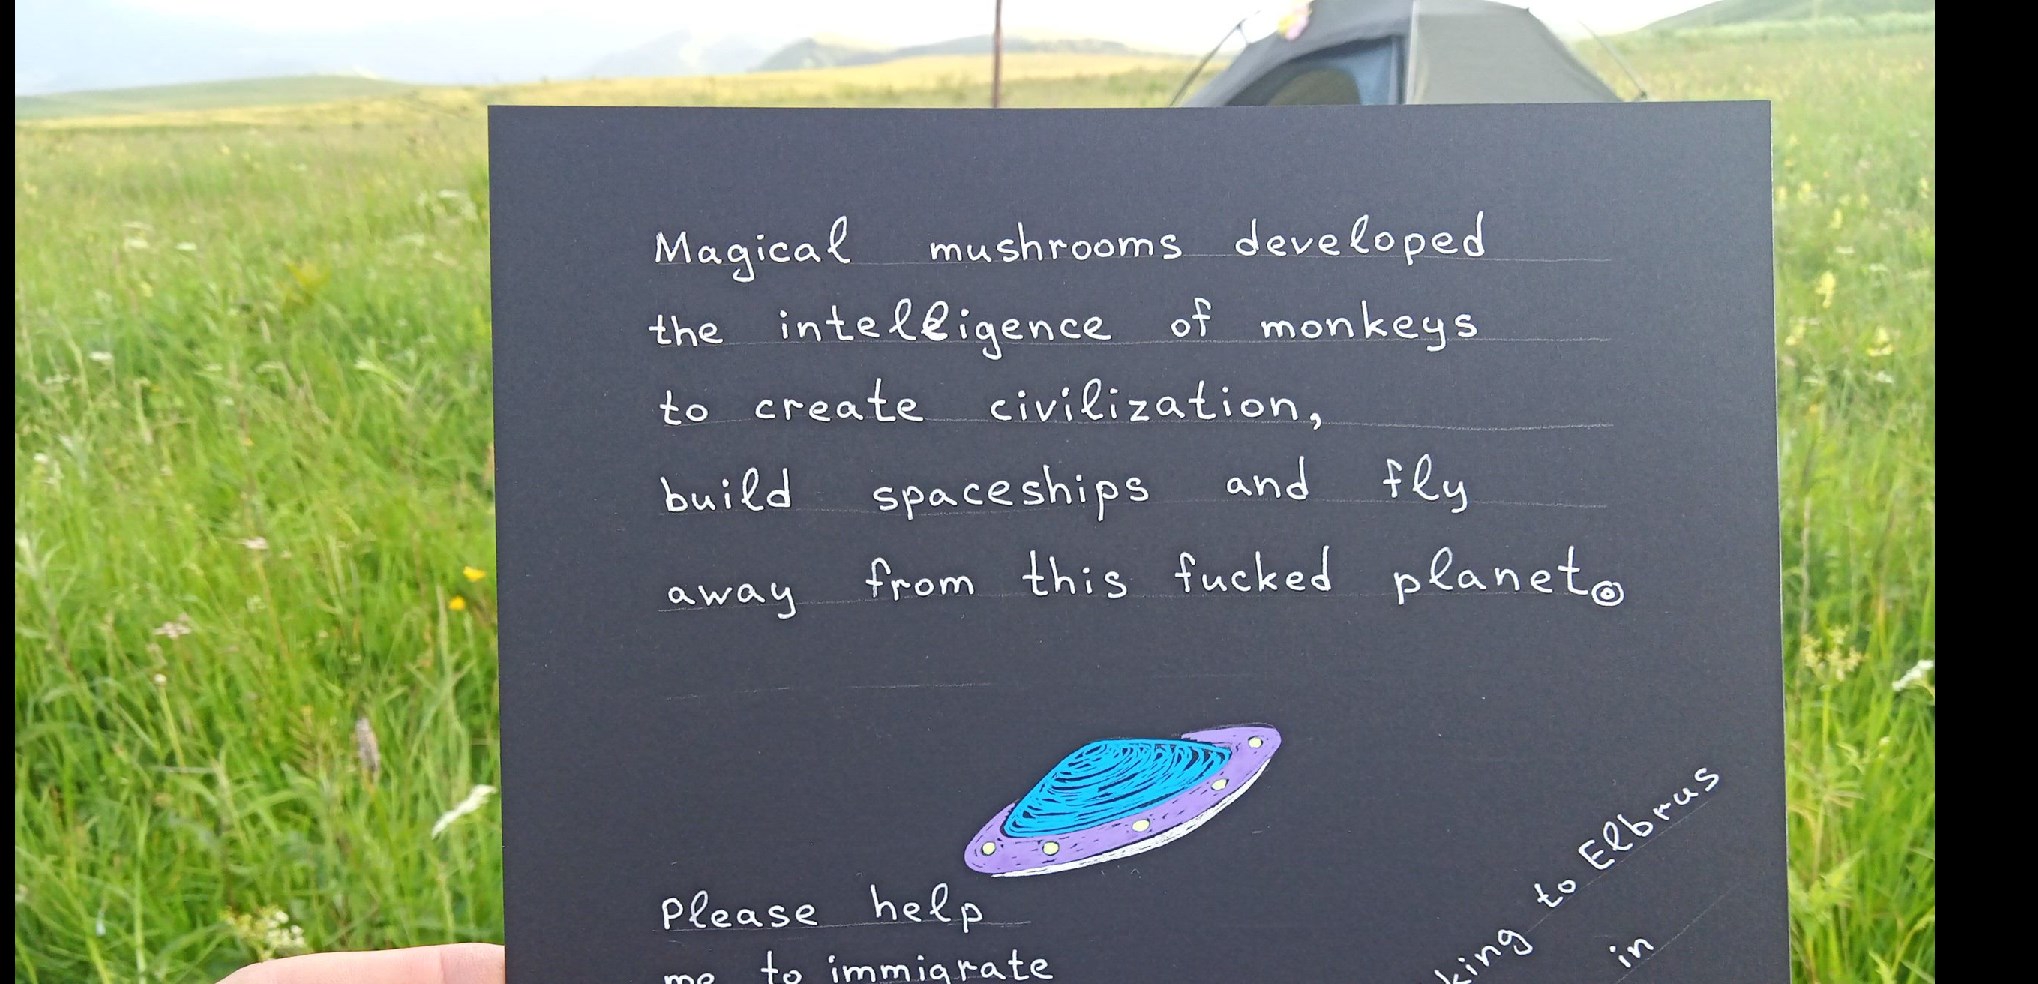 Magical mushrooms developed
the intelligence of monkeys
to create civilization,
build spaceships and fly
away from this fucked planet.
Please help
me to immigrate
to Elbrus
in